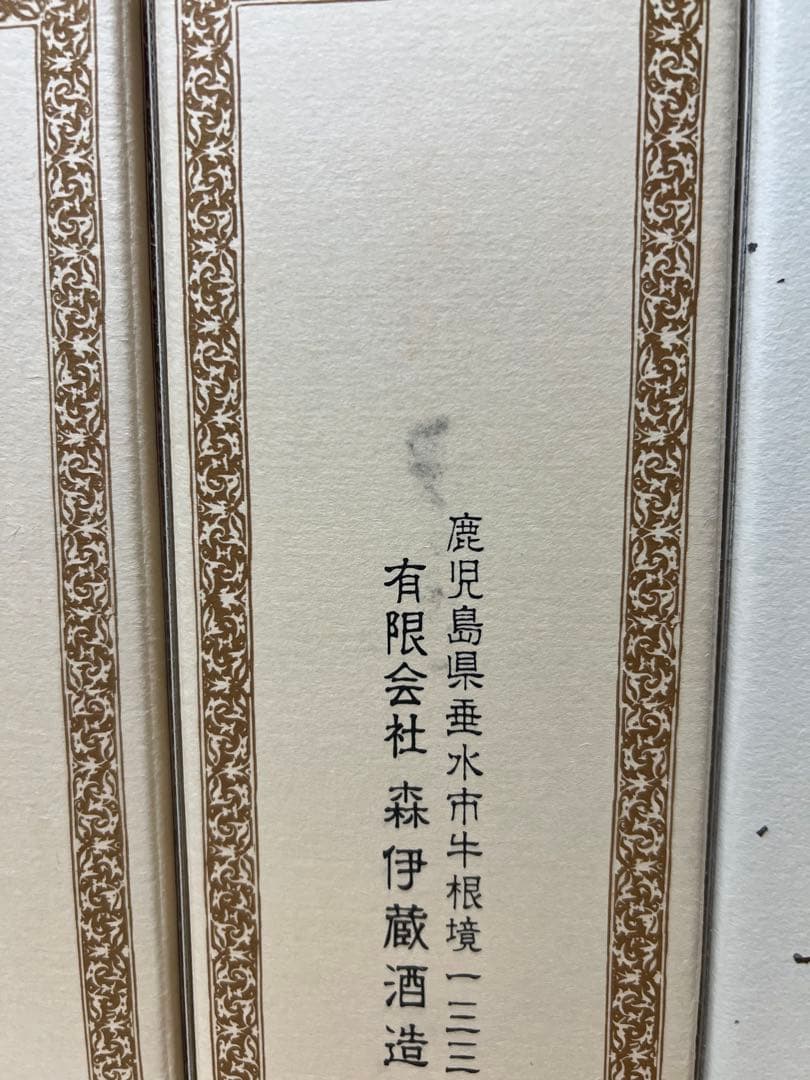 鹿児島県垂水市牛根境一三三
有限会社 森伊蔵酒造